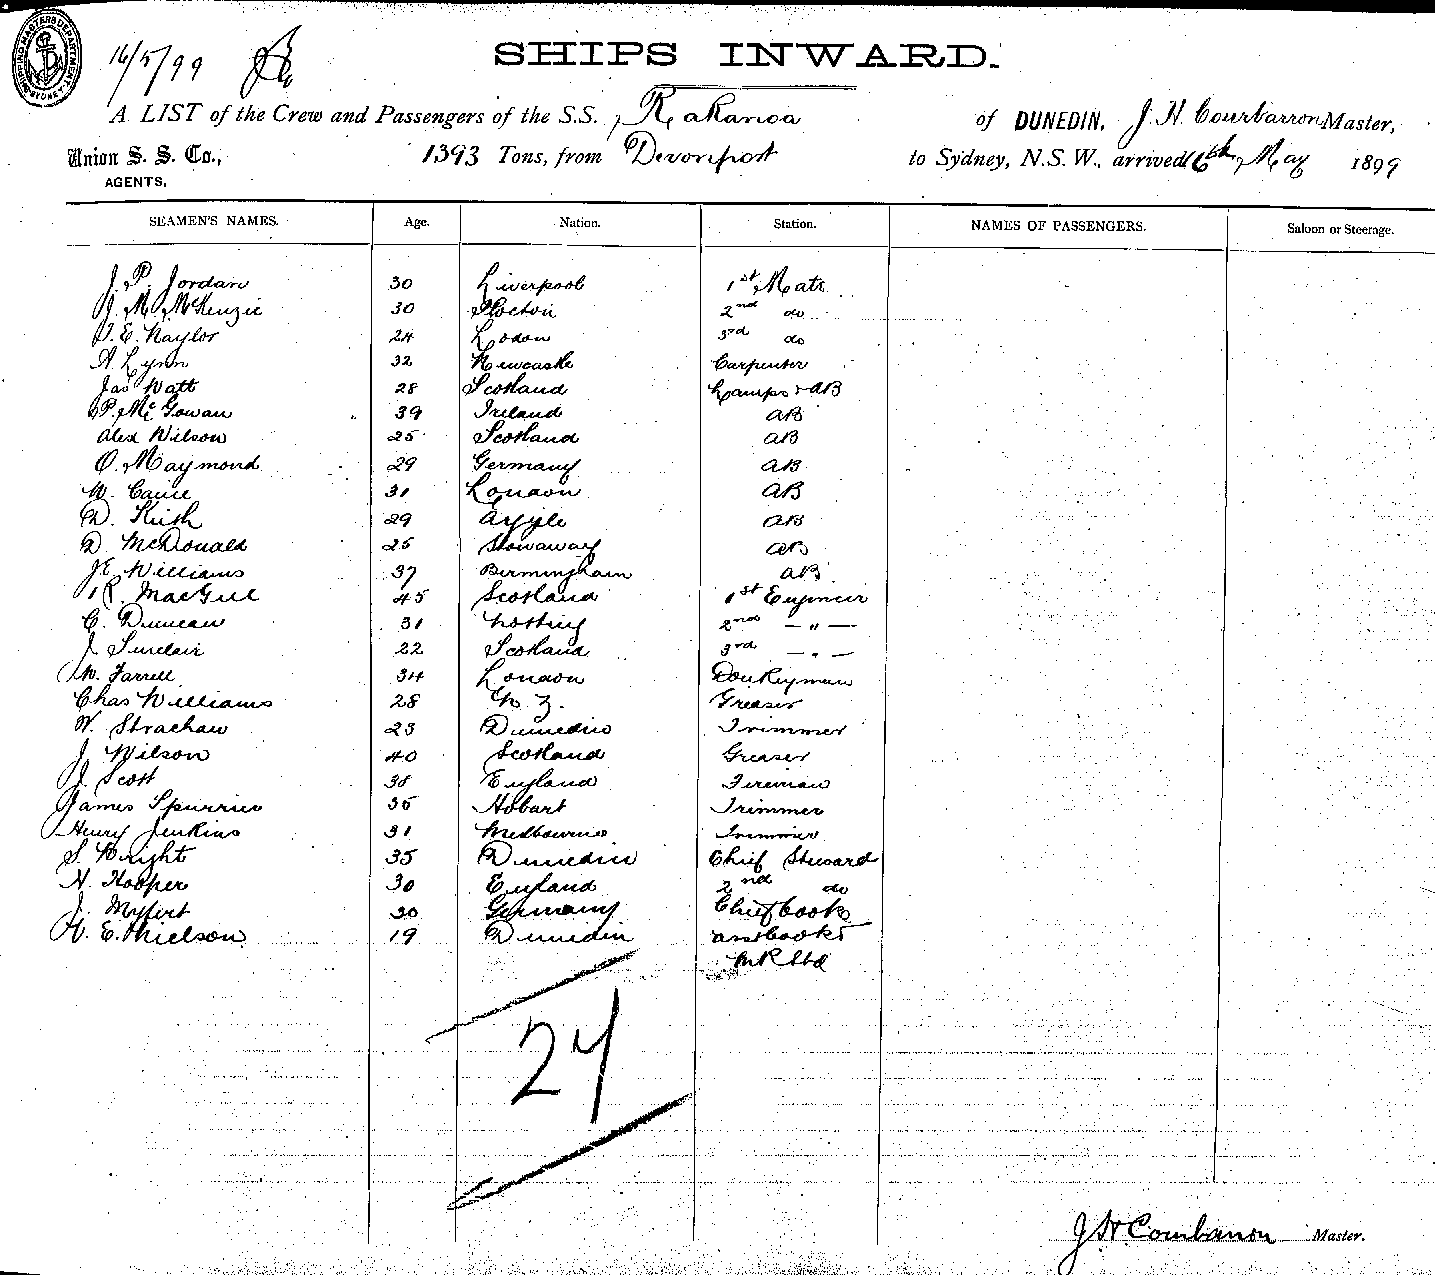 SHIPPING MASTERS DEPARTMENT SYDNEY
16/5/99
SHIPS INWARD.
A LIST of the Crew and Passengers of the S.S. Rakanoa of DUNEDIN, J. H. Master,
Union S. S. Co., 1393 Tons, from Devonport to Sydney, N.S.W., arrived 16th May 1899
AGENTS,
SEAMEN'S NAMES. Age. Nation. Station. NAMES OF PASSENGERS. Saloon or Steerage.
J. P. Jordan 30 Liverpool 1st Mate
J. M. McKenzie 30 2nd do
T. E. Naylor 24 Lodon 3rd do
A Lynn 32 Newcastle Carpenter
Jas Watt 28 Scotland Lamps & AB
P. McGowan 39 Ireland AB
Alex Wilson 25 Scotland AB
O. Maymond 29 Germany AB
W. 31 London AB
D. Keith 29 Argyle AB
D. McDonald 25 Stowaway AB
J E Williams 37 Birmingham AB
R. MacGill 45 Scotland 1st Engineer
C. Duncan 31 2nd - " -
J Sinclair 22 Scotland 3rd - " -
W. Farrell 34 London Donkeyman
Chas Williams 28 N Z. Greaser
W. Strachan 23 Dunedin Trimmer
J Wilson 40 Scotland Greaser
J. Scott 38 England Fireman
James Spurrier 35 Hobart Trimmer
Henry Jenkins 31 Melbourne Trimmer
S. Wright 35 Dunedin Chief Steward
H. Hooper 30 England 2nd do
J. 30 Germany Chief Cook
E. Nielson 19 Dunedin
M R Std
24
J H Master.